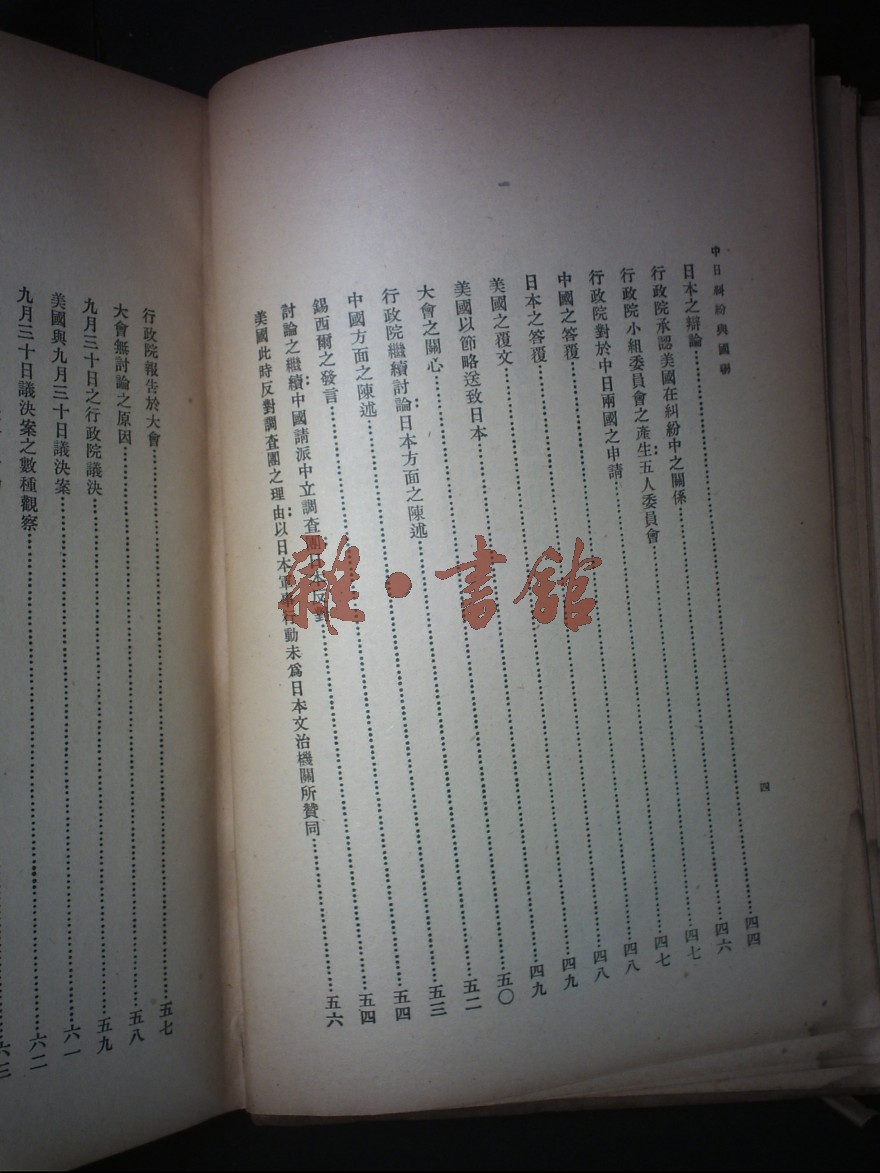 中日糾紛與國聯
四
日本之辯論……四四
行政院承認美國在糾紛中之關係……四六
行政院小組委員會之產生：五人委員會……四七
行政院對於中日兩國之申請……四七
中國之答覆……四八
日本之答覆……四八
美國之覆文……四九
美國以節略送致日本……四九
大會之關心……五〇
行政院繼續討論：日本方面之陳述……五二
中國方面之陳述……五三
錫西爾之發言……五四
討論之繼續：中國請派中立調查團日本反對……五四
美國此時反對調查團之理由：以日本軍事行動未爲日本文治機關所贊同……五六
行政院報告於大會……五七
大會無討論之原因……五八
九月三十日之行政院議決……五九
美國與九月三十日議決案……六一
九月三十日議決案之數種觀察……六二
六三
雜·書館